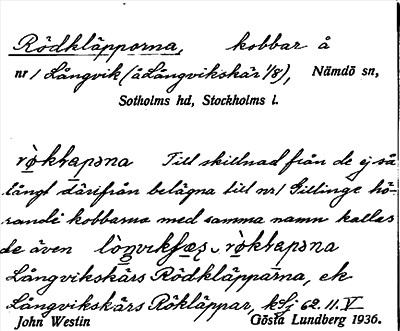 Rödkläpparna, kobbar å
nr 1 Långvik (å Långvikskär 1/8), Nämdö sn,
Sotholms hd, Stockholms l.
Till skillnad från de ej så
långt därifrån belägna till nr 1 Gillinge hö-
rande kobbarna med samma namn kallas
de även
Långvikskärs Rödkläpparna, ek
Långvikskärs Rökläppar, 62. II. V
John Westin Gösta Lundberg 1936.